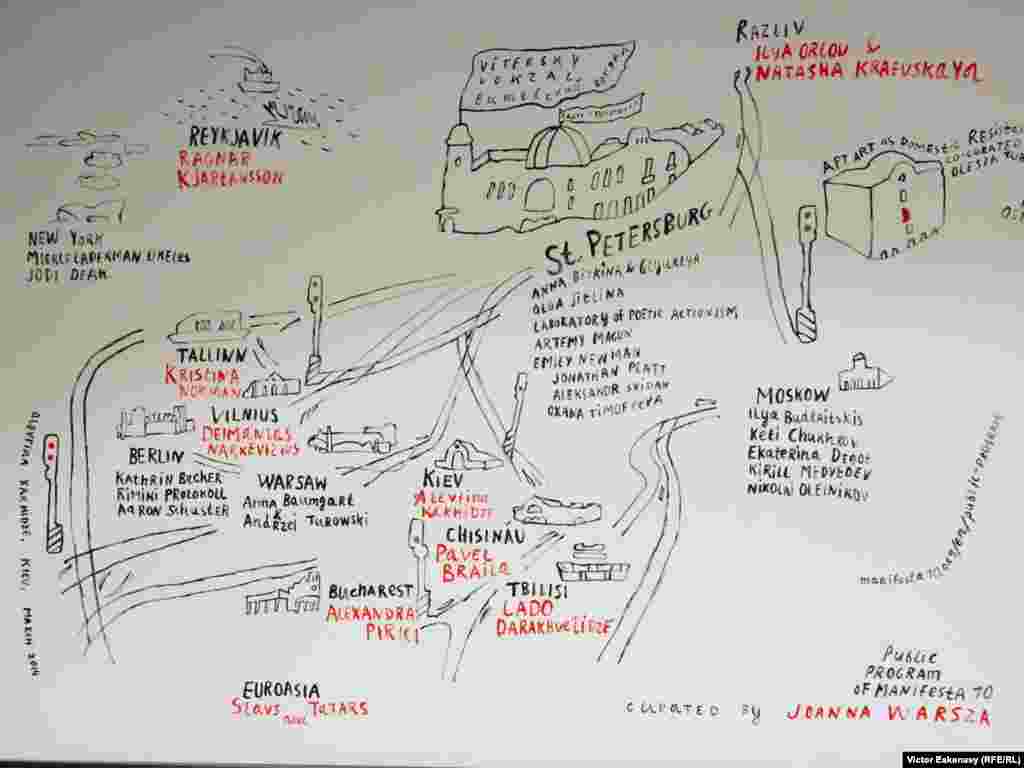 RAZLIV
ILYA ORLOV &
NATASHA KRAEVSKAYA
VITEBSKY
VOKZAL
REYKJAVIK
RAGNAR
KJARTANSSON
APT ART AS DOMESTIC RESIST
CO-CURATED
OLESYA TUR
NEW YORK
MIERLE LADERMAN UKELES
JODI DEAN
St. PETERSBURG
ANNA BITKINA &
OLGA JITLINA
LABORATORY of POETIC ACTIONISM
ARTEMY MAGUN
EMILY NEWMAN
JONATHAN PLATT
ALEKSANDR SKIDAN
OXANA TIMOFEEVA
TALLINN
KRISTINA
NORMAN
VILNIUS
DEIMANTAS
NARKEVIČIUS
BERLIN
KATHRIN BECKER
RIMINI PROTOKOLL
AARON SCHUSTER
WARSAW
Anna Baumgart
&
Andrzej Turowski
KIEV
Alevtina
KAKHIDZE
MOSKOW
Ilya Budraitskis
Keti Chukhrov
Ekaterina Degot
KIRILL MEDVEDEV
NIKOLAI OLEINIKOV
CHISINĂU
PAVEL
BRAILA
BUCHAREST
ALEXANDRA
PIRICI
TBILISI
LADO
DARAKHVELIDZE
EUROASIA
Slavs and TATARS
ALEVTINA KAKHIDZE, KIEV, MARCH 2014
manifesta10.org/en/public-program
PUBLIC
PROGRAM
OF MANIFESTA 10
CURATED BY JOANNA WARSZA
Victor Eskenasy (RFE/RL)